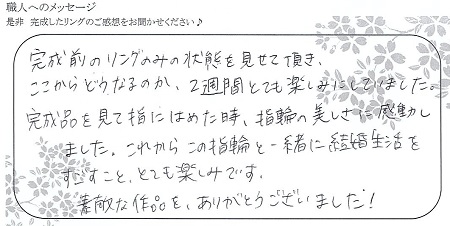 職人へのメッセージ
是非 完成したリングのご感想をお聞かせください♪
完成前のリングのみの状態を見せて頂き、
ここからどうなるのか、2週間とても楽しみにしていました。
完成品を見て指にはめた時、指輪の美しさに感動し
ました。これからこの指輪と一緒に結婚生活を
すごすこと、とても楽しみです。
素敵な作品を、ありがとうございました!